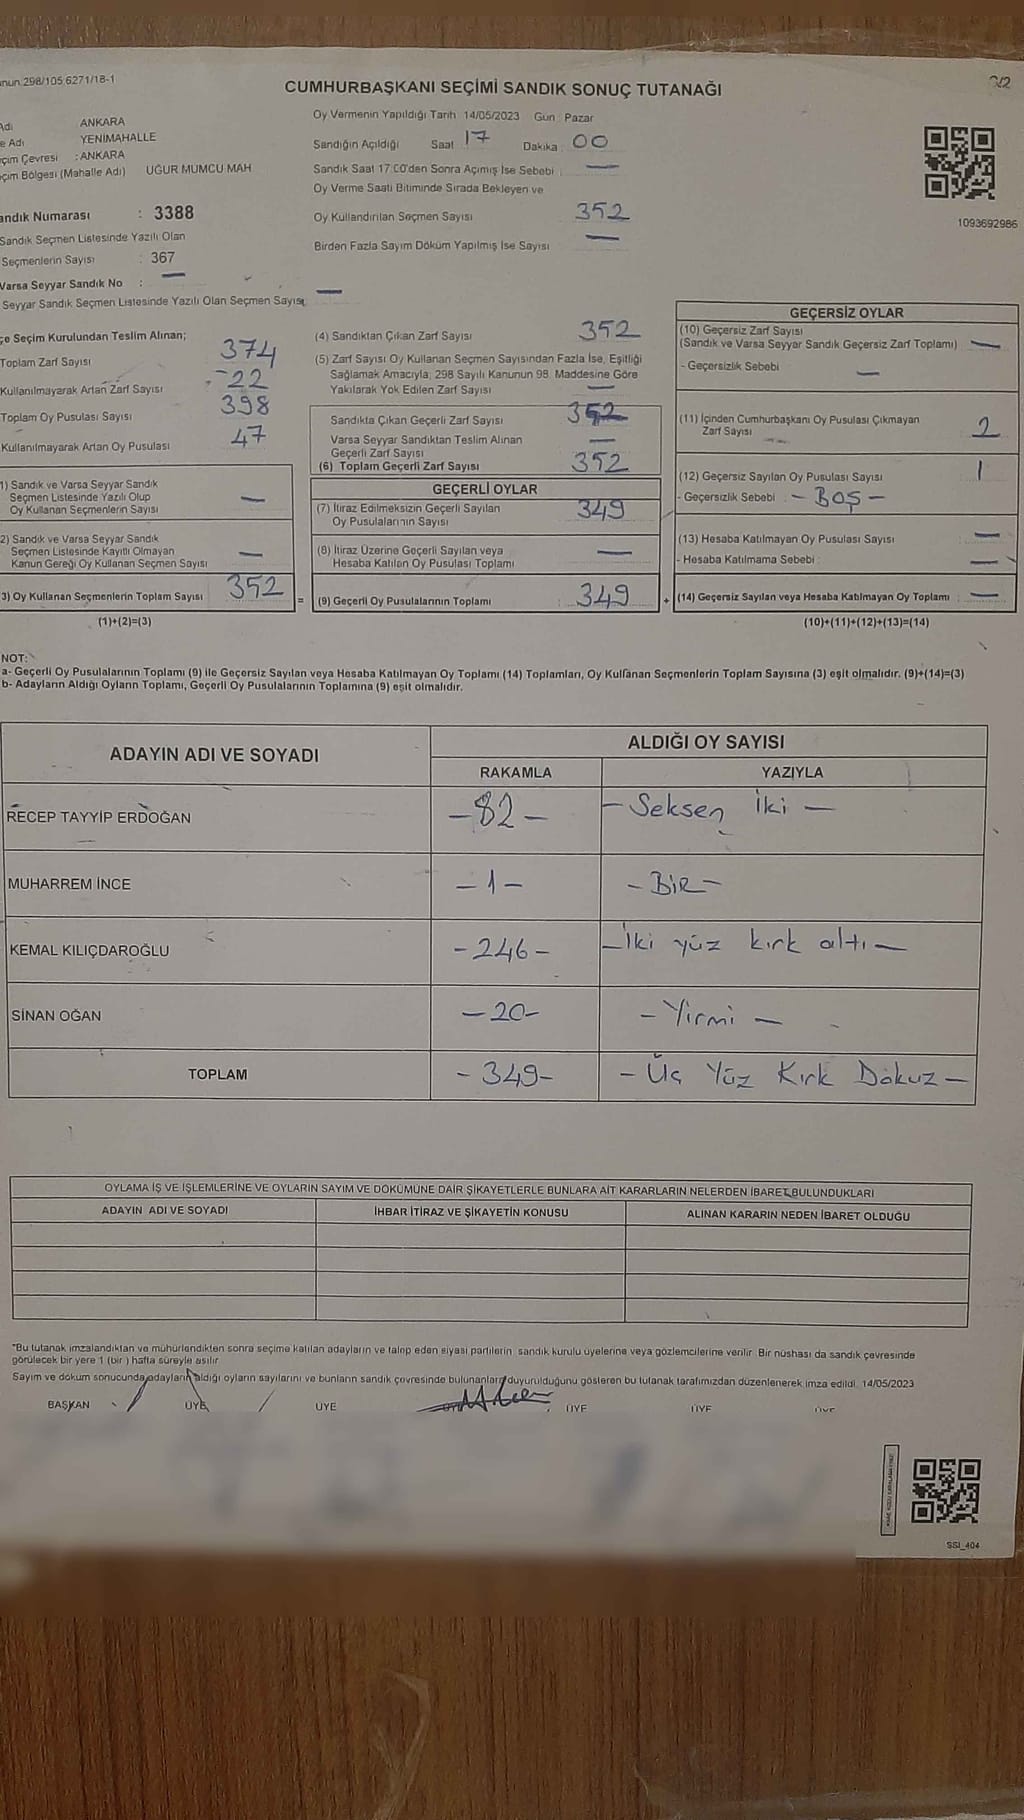 298/105,6271/18-1
CUMHURBAŞKANI SEÇİMİ SANDIK SONUÇ TUTANAĞI
ANKARA
YENİMAHALLE
: ANKARA
(Mahalle Adı) UĞUR MUMCU MAH
Oy Vermenin Yapıldığı Tarih 14/05/2023 Gün : Pazar
Sandığın Açıldığı Saat 17 Dakika : 00
Sandık Saat 17:00'den Sonra Açımış İse Sebebi : —
Oy Verme Saati Bitiminde Sırada Bekleyen ve
Oy Kullandırılan Seçmen Sayısı 352
Birden Fazla Sayım Döküm Yapılmış İse Sayısı —
1093692986
Numarası : 3388
Sandık Seçmen Listesinde Yazılı Olan
Seçmenlerin Sayısı : 367
Varsa Seyyar Sandık No : —
Seyyar Sandık Seçmen Listesinde Yazılı Olan Seçmen Sayısı —
Seçim Kurulundan Teslim Alınan;
Toplam Zarf Sayısı 374
Kullanılmayarak Artan Zarf Sayısı 22
Toplam Oy Pusulası Sayısı 398
Kullanılmayarak Artan Oy Pusulası 47
1) Sandık ve Varsa Seyyar Sandık
Seçmen Listesinde Yazılı Olup
Oy Kullanan Seçmenlerin Sayısı —
2) Sandık ve Varsa Seyyar Sandık
Seçmen Listesinde Kayıtlı Olmayan
Kanun Gereği Oy Kullanan Seçmen Sayısı —
3) Oy Kullanan Seçmenlerin Toplam Sayısı 352
(1)+(2)=(3)
(4) Sandıktan Çıkan Zarf Sayısı 352
(5) Zarf Sayısı Oy Kullanan Seçmen Sayısından Fazla İse, Eşitliği
Sağlamak Amacıyla; 298 Sayılı Kanunun 98. Maddesine Göre
Yakılarak Yok Edilen Zarf Sayısı —
Sandıkta Çıkan Geçerli Zarf Sayısı 352
Varsa Seyyar Sandıktan Teslim Alınan
Geçerli Zarf Sayısı —
(6) Toplam Geçerli Zarf Sayısı 352
GEÇERLİ OYLAR
(7) İtiraz Edilmeksizin Geçerli Sayılan
Oy Pusulalarının Sayısı 349
(8) İtiraz Üzerine Geçerli Sayılan veya
Hesaba Katılan Oy Pusulası Toplamı —
= (9) Geçerli Oy Pusulalarının Toplamı : 349 +
GEÇERSİZ OYLAR
(10) Geçersiz Zarf Sayısı
(Sandık ve Varsa Seyyar Sandık Geçersiz Zarf Toplamı) —
- Geçersizlik Sebebi : —
(11) İçinden Cumhurbaşkanı Oy Pusulası Çıkmayan
Zarf Sayısı 2
(12) Geçersiz Sayılan Oy Pusulası Sayısı 1
- Geçersizlik Sebebi : - BOŞ -
(13) Hesaba Katılmayan Oy Pusulası Sayısı —
- Hesaba Katılmama Sebebi : —
(14) Geçersiz Sayılan veya Hesaba Katılmayan Oy Toplamı : —
(10)+(11)+(12)+(13)=(14)
NOT:
a- Geçerli Oy Pusulalarının Toplamı (9) ile Geçersiz Sayılan veya Hesaba Katılmayan Oy Toplamı (14) Toplamları, Oy Kullanan Seçmenlerin Toplam Sayısına (3) eşit olmalıdır. (9)+(14)=(3)
b- Adayların Aldığı Oyların Toplamı, Geçerli Oy Pusulalarının Toplamına (9) eşit olmalıdır.
ADAYIN ADI VE SOYADI
ALDIĞI OY SAYISI
RAKAMLA YAZIYLA
RECEP TAYYİP ERDOĞAN - 82 - - Seksen İki -
MUHARREM İNCE - 1 - - BİR -
KEMAL KILIÇDAROĞLU - 246 - - İki yüz kırk altı -
SİNAN OĞAN - 20 - - Yirmi -
TOPLAM - 349 - - Üç Yüz Kırk Dokuz -
OYLAMA İŞ VE İŞLEMLERİNE VE OYLARIN SAYIM VE DÖKÜMÜNE DAİR ŞİKAYETLERLE BUNLARA AİT KARARLARIN NELERDEN İBARET BULUNDUKLARI
ADAYIN ADI VE SOYADI İHBAR İTİRAZ VE ŞİKAYETİN KONUSU ALINAN KARARIN NEDEN İBARET OLDUĞU
*Bu tutanak imzalandıktan ve mühürlendikten sonra seçime katılan adayların ve talep eden siyasi partilerin sandık kurulu üyelerine veya gözlemcilerine verilir. Bir nüshası da sandık çevresinde
görülecek bir yere 1 (bir ) hafta süreyle asılır.
Sayım ve döküm sonucunda adayların aldığı oyların sayılarını ve bunların sandık çevresinde bulunanlara duyurulduğunu gösteren bu tutanak tarafımızdan düzenlenerek imza edildi. 14/05/2023
BAŞKAN ÜYE ÜYE ÜYE ÜYE ÜYE
SSI_404